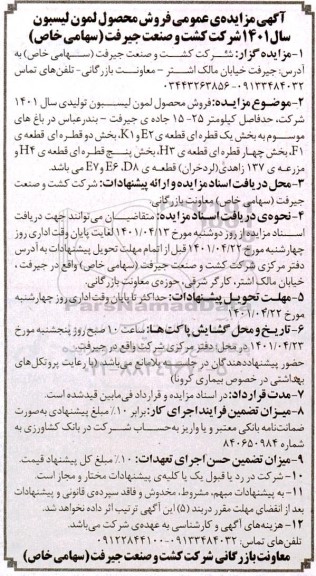 آگهی مزایده‌ی عمومی فروش محصول لمون لیسبون
سال ۱۴۰۱ شرکت کشت و صنعت جیرفت (سهامی خاص)
۱- مزایده گزار: شرکت کشت و صنعت جیرفت (سهامی خاص) به
آدرس: جیرفت خیابان مالک اشتر – معاونت بازرگانی- تلفن‌های تماس
۰۹۱۳۳۴۸۴۰۳۲ - ۰۳۴۴۳۲۶۳۸۵۶
۲- موضوع مزایده: فروش محصول لمون لیسبون تولیدی سال ۱۴۰۱
شرکت، حدفاصل کیلومتر ۲۵- ۱۵ جاده ی جیرفت – بندرعباس در باغ های
موسوم به بخش یک قطره ای قطعه ی E۲ و K۱، بخش دو قطره ای قطعه ی
F۱، بخش چهار قطره ای قطعه ی H۳، بخش پنج قطره ای قطعه ی H۴ و
مزرعه ی ۱۳۷ زاهدی (لردخزان) قطعه ی E۶، D۸ و E۷ می باشد.
۳- محل دریافت اسناد مزایده و ارائه پیشنهادات: شرکت کشت و صنعت
جیرفت (سهامی خاص) معاونت بازرگانی.
۴- نحوه‌ی دریافت اسناد مزایده: متقاضیان می‌توانند جهت دریافت
اسناد مزایده از روز دوشنبه مورخ ۱۴۰۱/۰۴/۱۳ لغایت پایان وقت اداری روز
چهارشنبه مورخ ۱۴۰۱/۰۴/۲۲ قبل از اتمام مهلت تحویل پیشنهادات به آدرس
دفتر مرکزی شرکت کشت و صنعت جیرفت (سهامی خاص) واقع در جیرفت،
خیابان مالک اشتر، کارگر شرقی، حوزه‌ی معاونت بازرگانی.
۵- مهلت تحویل پیشنهادات: حداکثر تا پایان وقت اداری روز چهارشنبه
مورخ ۱۴۰۱/۰۴/۲۲
۶- تاریخ و محل گشایش پاکت‌ها: ساعت ۱۰ صبح روز پنجشنبه مورخ
۱۴۰۱/۰۴/۲۳ در محل دفتر مرکزی شرکت واقع در جیرفت.
حضور پیشنهاددهندگان در جلسه بلامانع می‌باشد. (با رعایت پروتکل‌های
بهداشتی در خصوص بیماری کرونا)
۷- مدت قرارداد: در اسناد مزایده و قرارداد فی‌مابین قیدشده است.
۸- میزان تضمین فرایند اجرای کار: برابر ۱۰٪ مبلغ پیشنهادی به‌صورت
ضمانت‌نامه بانکی معتبر و یا واریز به‌حساب شرکت در بانک کشاورزی به
شماره ۸۴۰۶۵۰۹۸۴
۹- میزان تضمین حسن اجرای تعهدات: ۱۰٪ مبلغ کل پیشنهاد قیمت.
۱۰- شرکت در رد یا قبول یک یا کلیه‌ی پیشنهادات مختار و مجاز است.
۱۱- به پیشنهادات مبهم، مشروط، مخدوش و فاقد سپرده‌ی قانونی و پیشنهادات
بعد از انقضای مهلت مقرر در بند (۵) این آگهی ترتیب اثر داده نخواهد شد.
۱۲- هزینه‌های آگهی و کارشناسی به عهده‌ی شرکت می‌باشد.
تلفن‌های تماس: ۰۹۱۳۳۴۸۴۰۳۲-۰۹۱۲۲۸۴۴۱۰۰
معاونت بازرگانی شرکت کشت و صنعت جیرفت (سهامی خاص)